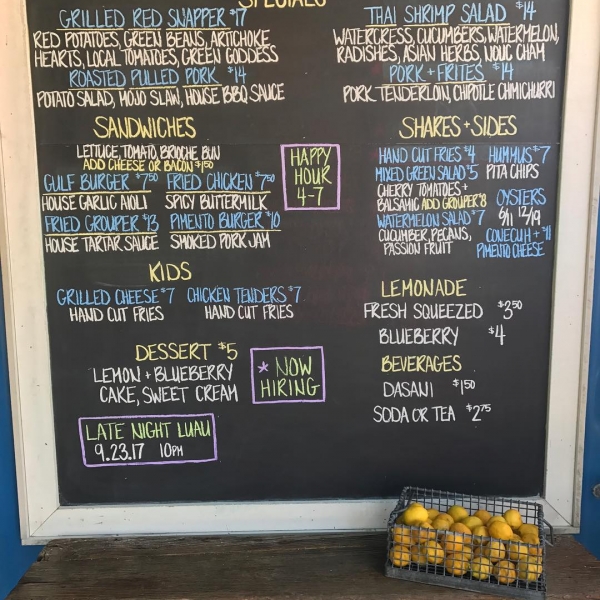 SPECIALS
GRILLED RED SNAPPER $17
RED POTATOES, GREEN BEANS, ARTICHOKE
HEARTS, LOCAL TOMATOES, GREEN GODDESS
ROASTED PULLED PORK $14
POTATO SALAD, MOJO SLAW, HOUSE BBQ SAUCE
THAI SHRIMP SALAD $14
WATERCRESS, CUCUMBERS, WATERMELON,
RADISHES, ASIAN HERBS, NOUC CHAM
PORK + FRITES $14
PORK TENDERLOIN, CHIPOTLE CHIMICHURRI
SANDWICHES
LETTUCE, TOMATO, BRIOCHE BUN
ADD CHEESE OR BACON $1.50
GULF BURGER $7.50
HOUSE GARLIC AIOLI
FRIED CHICKEN $7.50
SPICY BUTTERMILK
FRIED GROUPER $13
HOUSE TARTAR SAUCE
PIMENTO BURGER $10
SMOKED PORK JAM
HAPPY
HOUR
4-7
SHARES + SIDES
HAND CUT FRIES $4
MIXED GREEN SALAD $5
CHERRY TOMATOES +
BALSAMIC ADD GROUPER $8
WATERMELON SALAD $7
CUCUMBER, PECANS,
PASSION FRUIT
HUMMUS $7
PITA CHIPS
OYSTERS
6/11 12/19
CONECUH + $11
PIMENTO CHEESE
KIDS
GRILLED CHEESE $7
HAND CUT FRIES
CHICKEN TENDERS $7
HAND CUT FRIES
DESSERT $5
LEMON + BLUEBERRY
CAKE, SWEET CREAM
* NOW
HIRING
LATE NIGHT LUAU
9.23.17 10PM
LEMONADE
FRESH SQUEEZED $3.50
BLUEBERRY $4
BEVERAGES
DASANI $1.50
SODA OR TEA $2.75